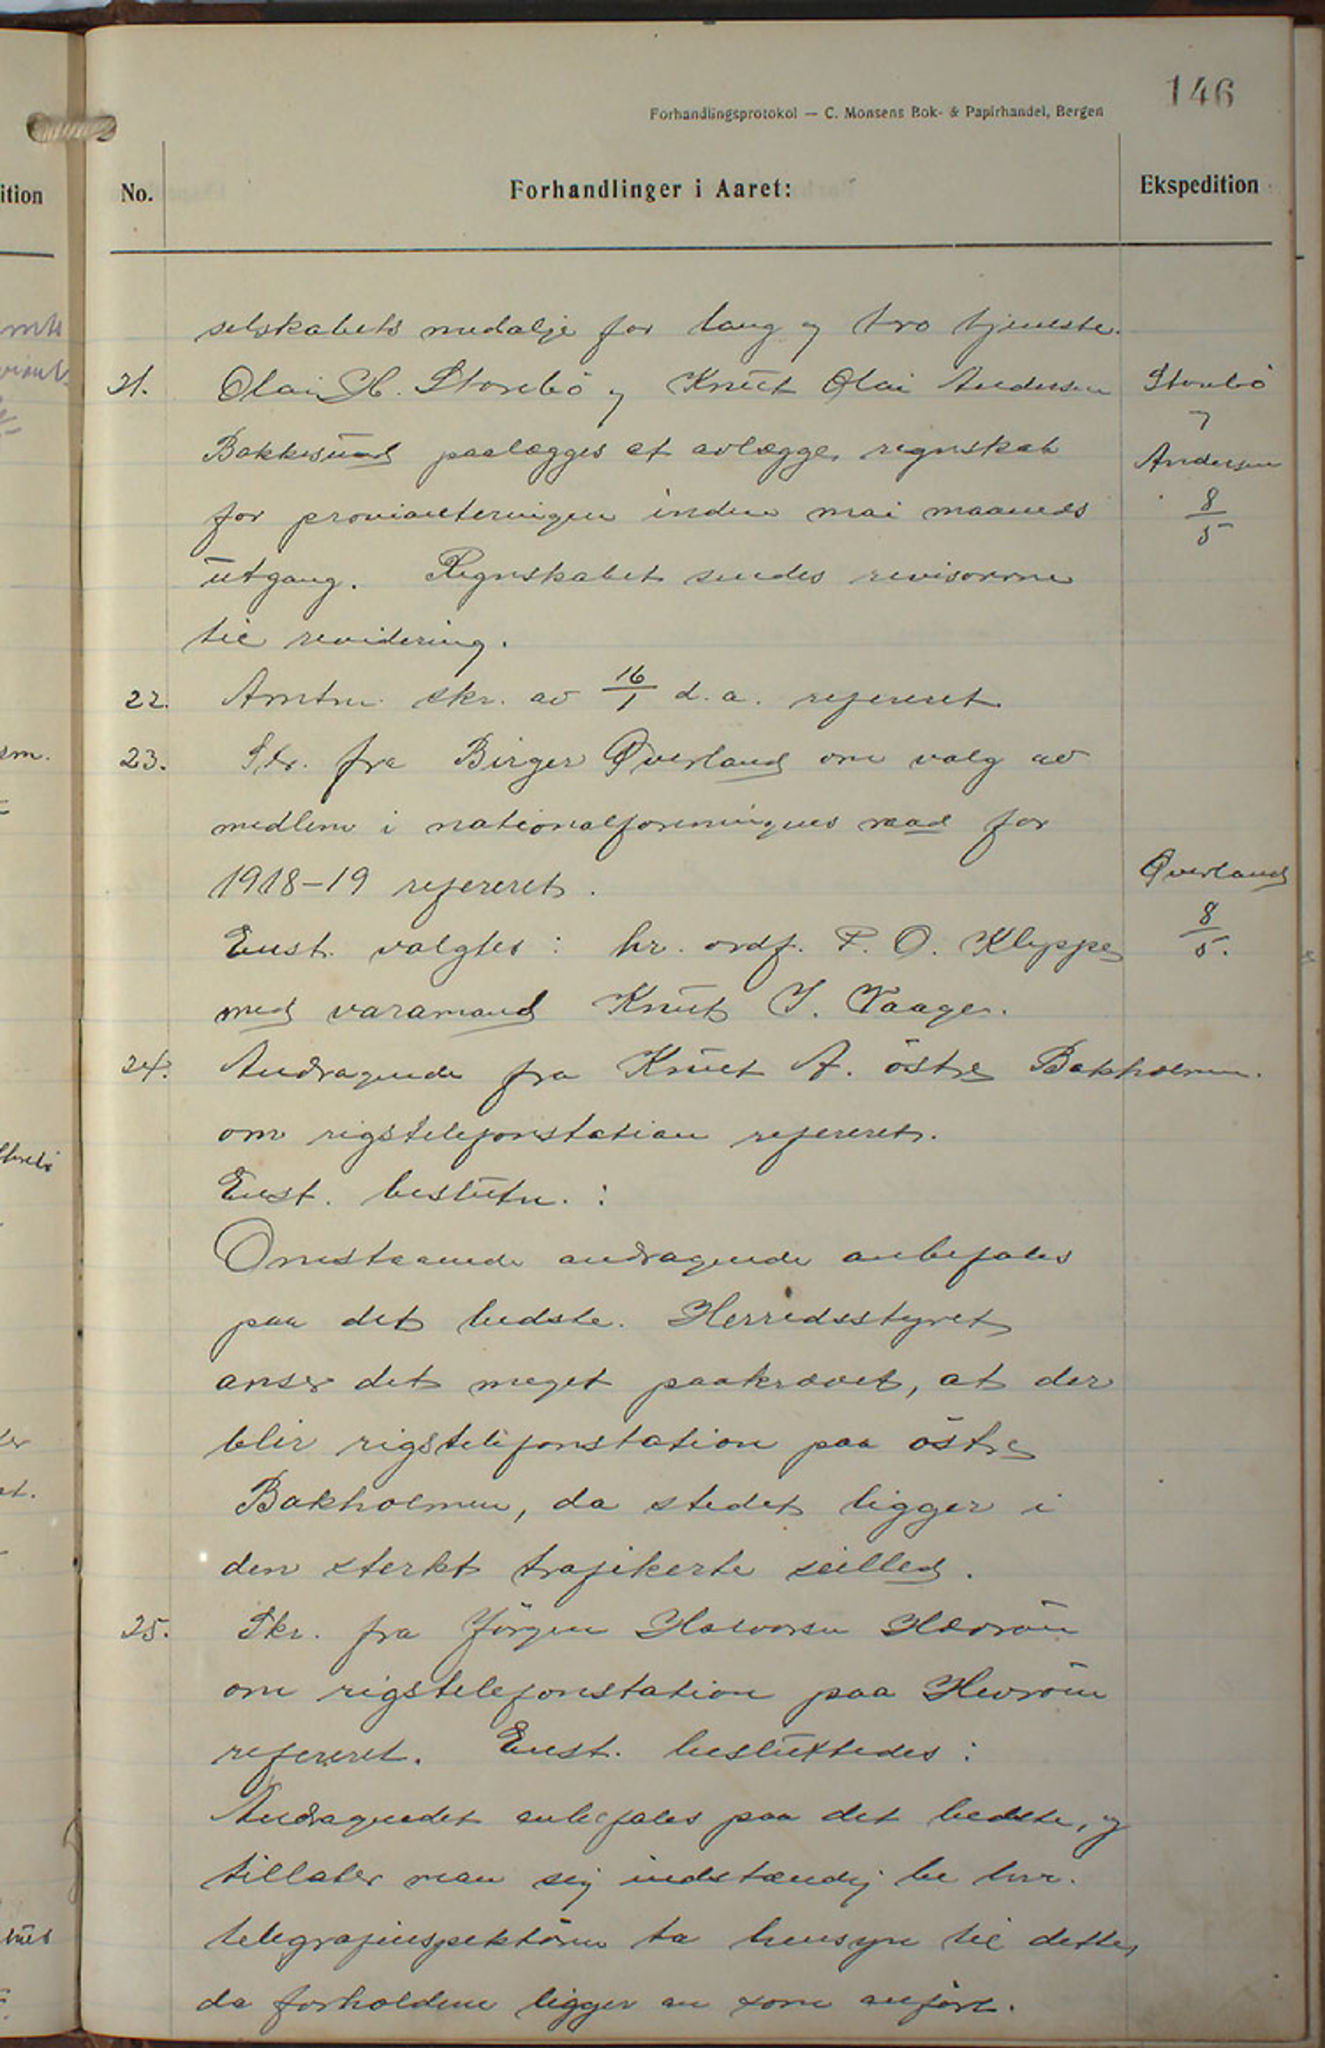 146
Forhandlingsprotokol — C. Monsens Bok- & Papirhandel, Bergen
ition
No.
Forhandlinger i Aaret:
Ekspedition
selskabets medalje for lang og tro tjeneste.
21. Olai H. Storebö og Knut Olai Andersen
Storebö
og
Andersen
8/5
Bakkesund paalægges at avlægge regnskab
for provianteringen inden mai maaneds
utgang. Regnskabet sendes revisorerne
til revidering.
22. Amtm. skr. av 16/1 d.a. refereret
23. Skr. fra Birger Øverland om valg av
medlem i nationalforeningens raad for
1918-19 refereret.
Øverland
8/5.
Enst. valgtes: hr. ordf. P. O. Kleppe
med varamand Knut J. Vaage.
24. Andragende fra Knut A. östre Bakholmen.
om rigstelefonstation refereret.
Enst. beslutn.:
Omstaaende andragende anbefales
paa det bedste. Herredsstyret
anser det meget paakrævet, at der
blir rigstelefonstation paa östre
Bakholmen, da stedet ligger i
den sterkt trafikerte seilled.
25. Skr. fra Jörgen Halvorsen Hævröen
om rigstelefonstation paa Hevröen
refereret. Enst. besluttedes:
Andragendet anbefales paa det bedste, og
tillater man sig indstændig be hrr.
telegrafinspektören ta hensyn til dette,
da forholdene ligger an som anfört.